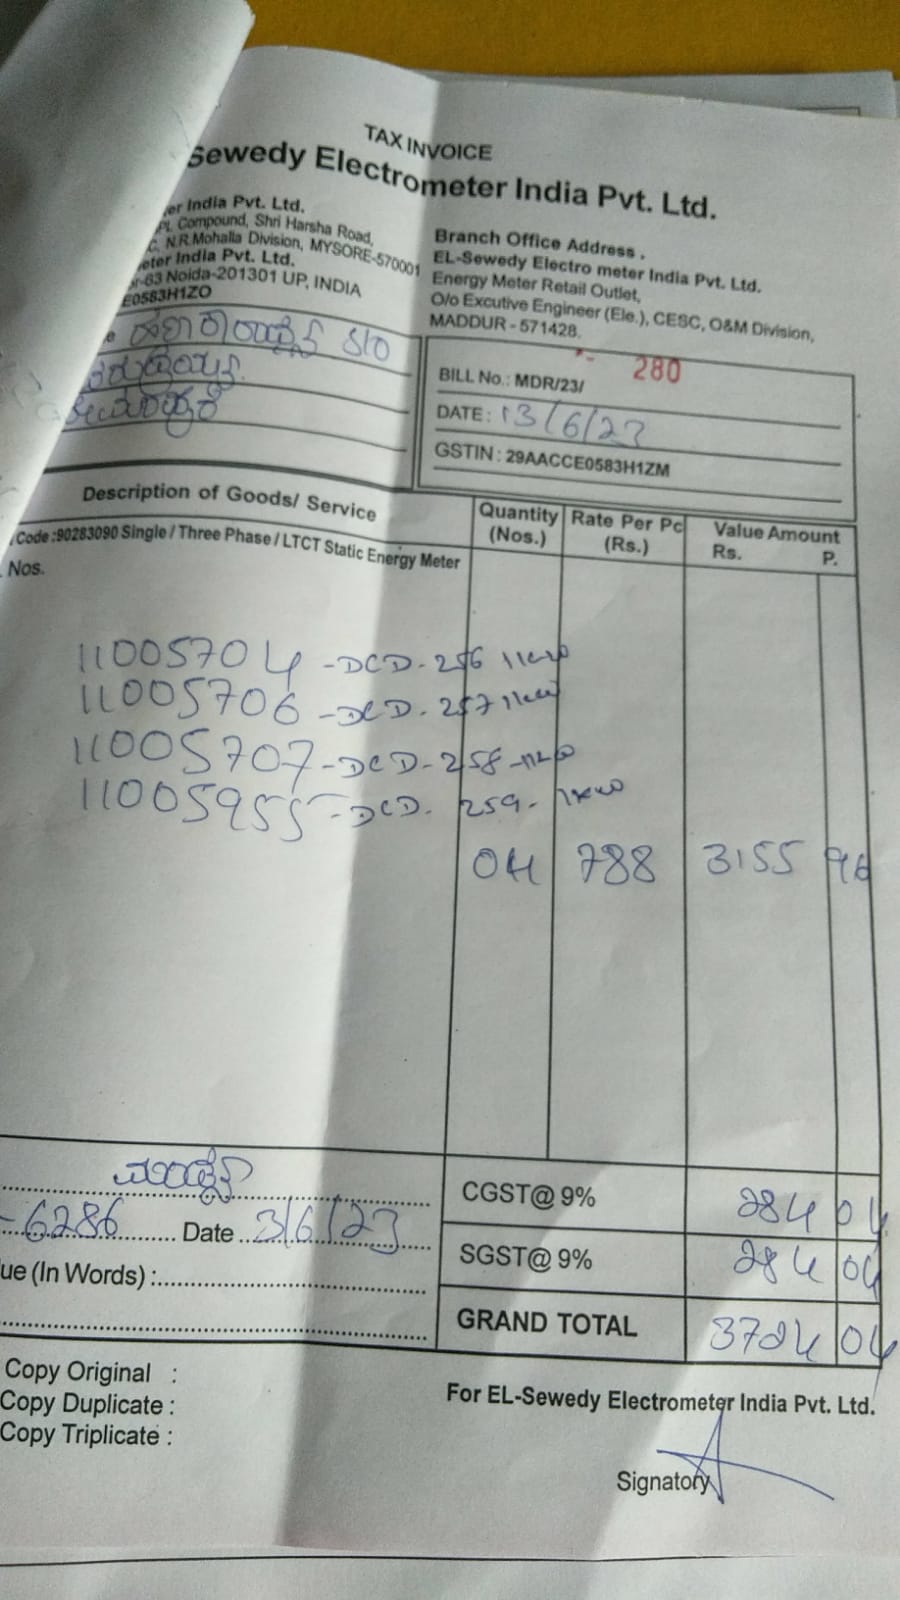 TAX INVOICE
Sewedy Electrometer India Pvt. Ltd.
er India Pvt. Ltd.
Compound, Shri Harsha Road,
N.R.Mohalla Division, MYSORE-570001
eter India Pvt. Ltd.
-63 Noida-201301 UP, INDIA
E0583H1ZO
Branch Office Address .
EL-Sewedy Electro meter India Pvt. Ltd.
Energy Meter Retail Outlet,
O/o Excutive Engineer (Ele.), CESC, O&M Division,
MADDUR - 571428.
S/O
BILL No.: MDR/23/ 280
DATE : 13/6/23
GSTIN : 29AACCE0583H1ZM
Description of Goods/ Service
Quantity (Nos.)
Rate Per Pc (Rs.)
Value Amount
Rs. P.
Code :90283090 Single / Three Phase / LTCT Static Energy Meter
Nos.
11005704 - DCD - 256 1kw
11005706 - DCD . 257 1kw
11005707 - DCD - 258 - 1kw
11005955 - DCD . 259 - 1kw
04 788 3155 96
CGST@ 9% 284 04
-6286 Date 3/6/23
SGST@ 9% 284 04
ue (In Words) :
GRAND TOTAL 3724 04
Copy Original :
Copy Duplicate :
Copy Triplicate :
For EL-Sewedy Electrometer India Pvt. Ltd.
Signatory